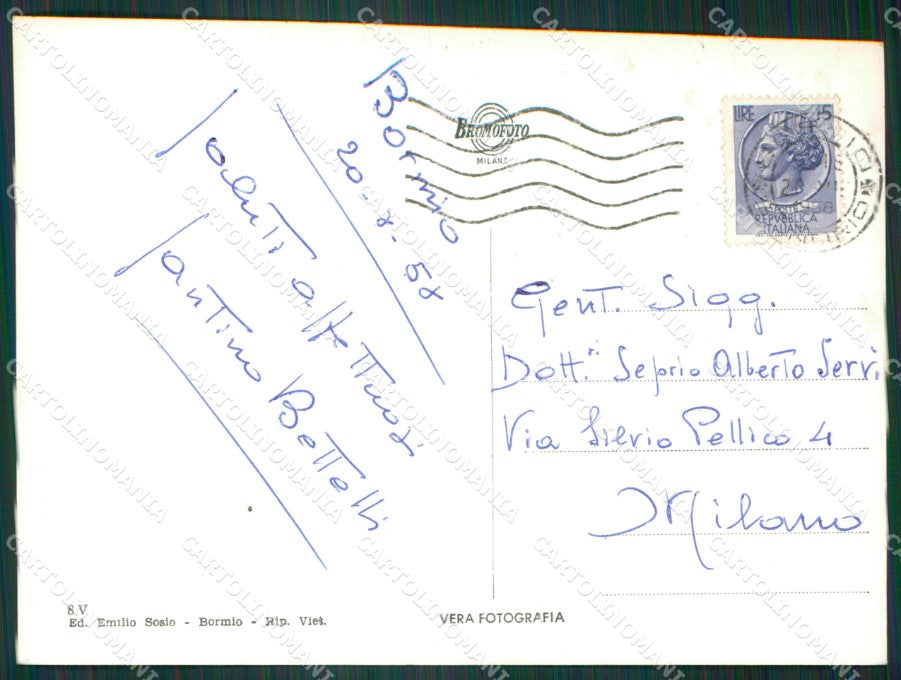 Bormio
20-8-58
Saluti affettuosi
Santino Bettelli
BROMOFOTO
MILANO
LIRE 15
REPVBBLICA
ITALIANA
Gent. Sigg.
Dott.ri Seprio Alberto Servi
Via Silvio Pellico 4
Milano
8 V
Ed. Emilio Sosio - Bormio - Rip. Viet.
VERA FOTOGRAFIA
CARTOLINOMANIA